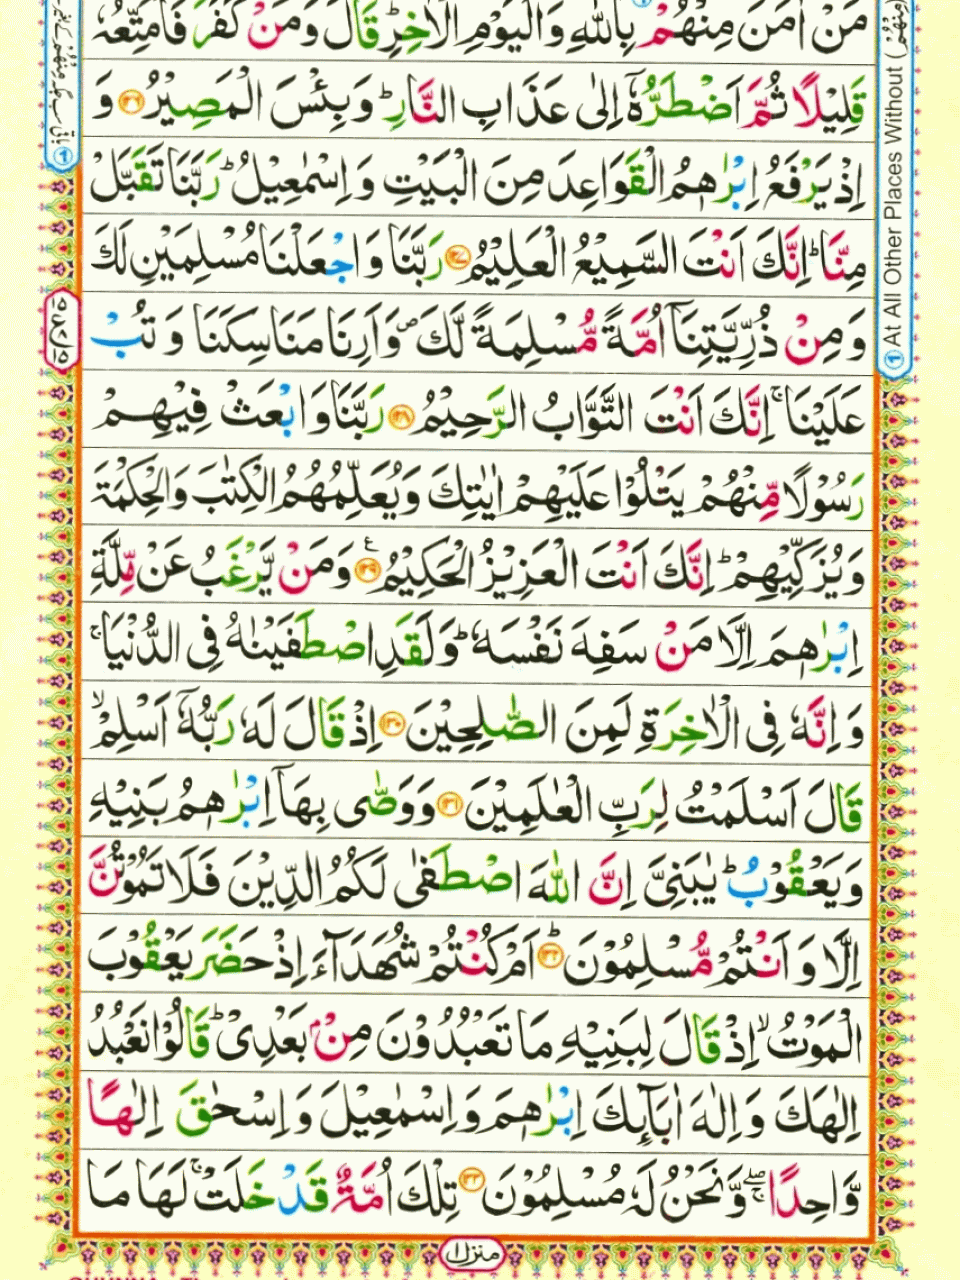 مَنْ اٰمَنَ مِنْهُمْ بِاللّٰهِ وَالْيَوْمِ الْاٰخِرِ ؕ قَالَ وَمَنْ كَفَرَ فَاُمَتِّعُهٗ
قَلِيْلًا ثُمَّ اَضْطَرُّهٗۤ اِلٰى عَذَابِ النَّارِ ؕ وَبِئْسَ الْمَصِيْرُ ﴿۱۲۶﴾ وَ
اِذْ يَرْفَعُ اِبْرٰهٖمُ الْقَوَاعِدَ مِنَ الْبَيْتِ وَاِسْمٰعِيْلُ ؕ رَبَّنَا تَقَبَّلْ
مِنَّا ؕ اِنَّكَ اَنْتَ السَّمِيْعُ الْعَلِيْمُ ﴿۱۲۷﴾ رَبَّنَا وَاجْعَلْنَا مُسْلِمَيْنِ لَكَ
وَمِنْ ذُرِّيَّتِنَاۤ اُمَّةً مُّسْلِمَةً لَّكَ ۪ وَاَرِنَا مَنَاسِكَنَا وَتُبْ
عَلَيْنَا ۚ اِنَّكَ اَنْتَ التَّوَّابُ الرَّحِيْمُ ﴿۱۲۸﴾ رَبَّنَا وَابْعَثْ فِيْهِمْ
رَسُوْلًا مِّنْهُمْ يَتْلُوْا عَلَيْهِمْ اٰيٰتِكَ وَيُعَلِّمُهُمُ الْكِتٰبَ وَالْحِكْمَةَ
وَيُزَكِّيْهِمْ ؕ اِنَّكَ اَنْتَ الْعَزِيْزُ الْحَكِيْمُ ﴿۱۲۹﴾ ع وَمَنْ يَّرْغَبُ عَنْ مِّلَّةِ
اِبْرٰهٖمَ اِلَّا مَنْ سَفِهَ نَفْسَهٗ ؕ وَلَقَدِ اصْطَفَيْنٰهُ فِى الدُّنْيَا ۚ
وَاِنَّهٗ فِى الْاٰخِرَةِ لَمِنَ الصّٰلِحِيْنَ ﴿۱۳۰﴾ اِذْ قَالَ لَهٗ رَبُّهٗۤ اَسْلِمْ ۙ
قَالَ اَسْلَمْتُ لِرَبِّ الْعٰلَمِيْنَ ﴿۱۳۱﴾ وَوَصّٰى بِهَاۤ اِبْرٰهٖمُ بَنِيْهِ
وَيَعْقُوْبُ ؕ يٰبَنِىَّ اِنَّ اللّٰهَ اصْطَفٰى لَكُمُ الدِّيْنَ فَلَا تَمُوْتُنَّ
اِلَّا وَاَنْتُمْ مُّسْلِمُوْنَ ؕ ﴿۱۳۲﴾ اَمْ كُنْتُمْ شُهَدَآءَ اِذْ حَضَرَ يَعْقُوْبَ
الْمَوْتُ ۙ اِذْ قَالَ لِبَنِيْهِ مَا تَعْبُدُوْنَ مِنْۢ بَعْدِىْ ؕ قَالُوْا نَعْبُدُ
اِلٰهَكَ وَاِلٰهَ اٰبَآئِكَ اِبْرٰهٖمَ وَاِسْمٰعِيْلَ وَاِسْحٰقَ اِلٰهًا
وَّاحِدًا ۖۚ وَّنَحْنُ لَهٗ مُسْلِمُوْنَ ﴿۱۳۳﴾ تِلْكَ اُمَّةٌ قَدْ خَلَتْ ۚ لَهَا مَا
منزل ۱
① At All Other Places Without (مِنْهُمْ)